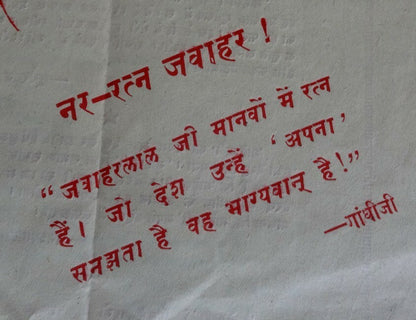 नर-रत्न जवाहर !
“ जवाहरलाल जी मानवों में रत्न
हैं। जो देश उन्हें ‘ अपना ’
समझता है वह भाग्यवान् है !”
—गांधीजी